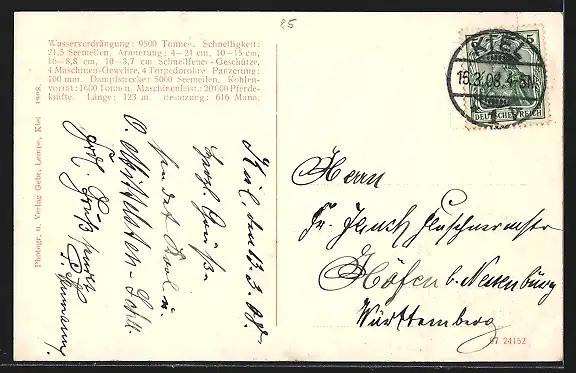 25
Wasserverdrängung: 9500 Tonnen. Schnelligkeit:
21,5 Seemeilen. Armierung: 4—21 cm, 10—15 cm,
16—8,8 cm, 10—3,7 cm Schnellfeuer-Geschütze,
4 Maschinen-Gewehre, 4 Torpedorohre. Panzerung:
100 mm. Dampfstrecke: 5000 Seemeilen. Kohlen-
vorrat: 1600 Tonnen. Maschinenleist.: 20000 Pferde-
kräfte. Länge: 123 m. Besatzung: 616 Mann.
Photogr. u. Verlag Gebr. Lempe, Kiel 1908.
Kiel, den 15.3.08.
Gruß
sendet Karl u.
Herrn
Fr.
Höfen b. Neuenbürg
Württemberg
KIEL
5
15.3.08.4-5N
1
DEUTSCHES REICH
07 24152